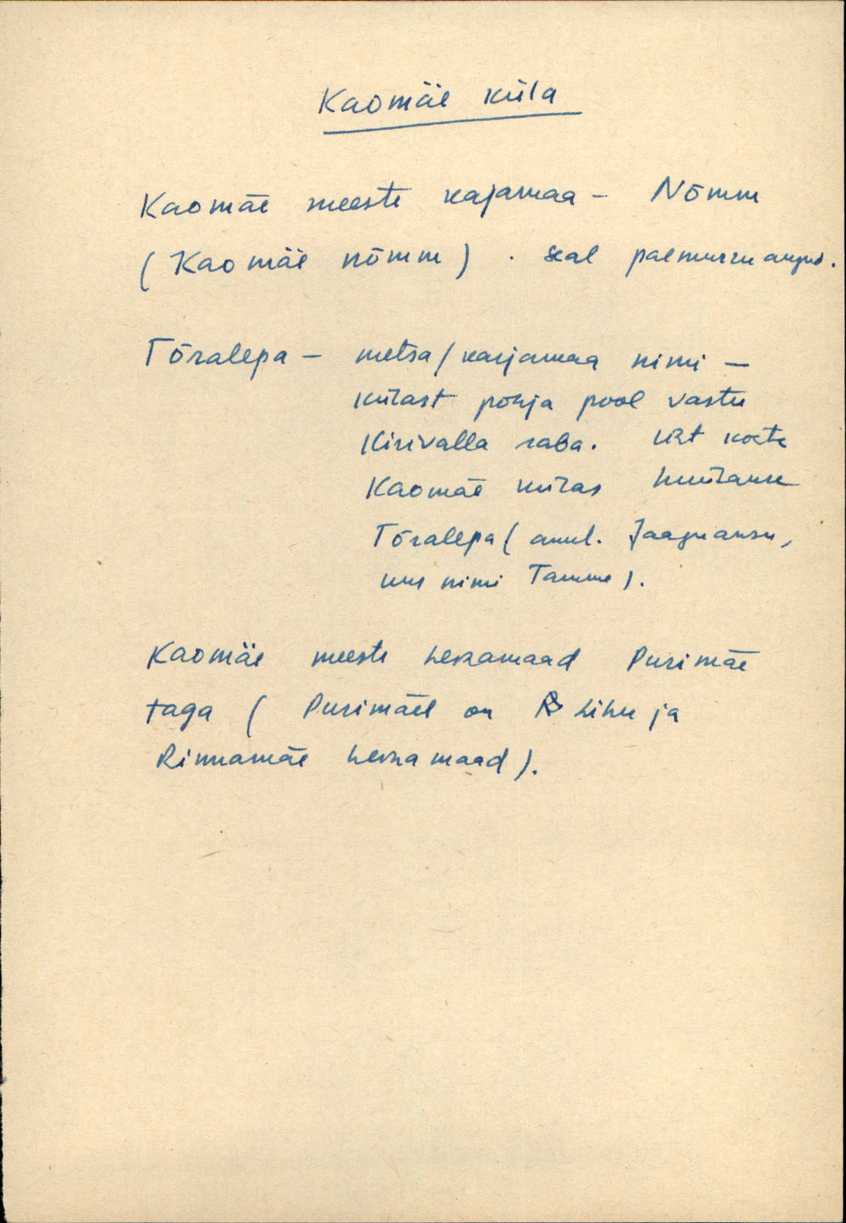 Kaomäe küla
Kaomäe meeste kajamaa – Nõmm
(Kaomäe nõmm). Seal paemurru augud.
Tõralepa – metsa/karjamaa nimi –
külast põhja pool vastu
Kirivalla raba. Üht kohta
Kaomäe külas hüütakse
Tõralepa (amel. Jaaguansu,
uus nimi Tamme).
Kaomäe meeste heinamaad Purimäe
taga (Purimäel on Lihu ja
Rinnamäe heinamaad).